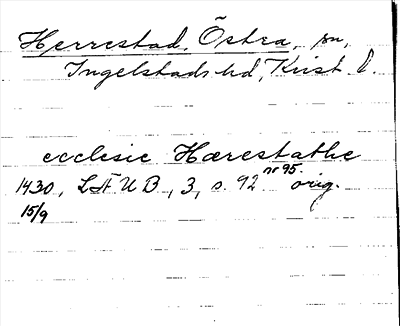 Herrestad, Östra, sn,
Ingelstads hd, Krist. l.
ecclesie Hærestathe
1430, LÄUB, 3, s. 92 nr 95. orig.
15/9